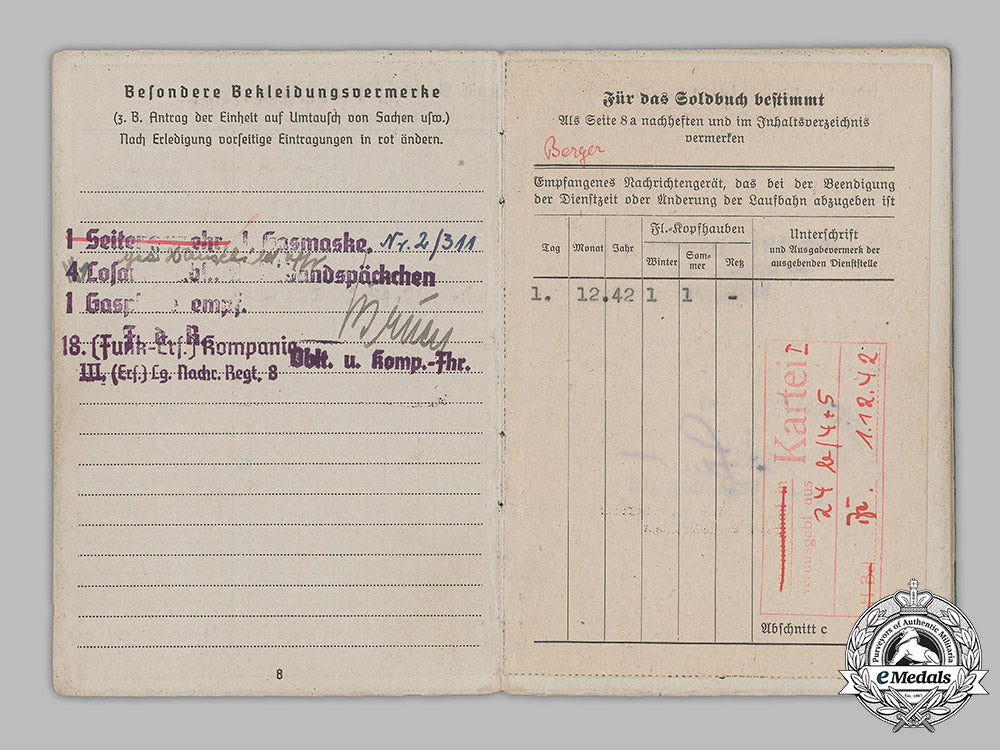 Besondere Bekleidungsvermerke
(z. B. Antrag der Einheit auf Umtausch von Sachen usw.)
Nach Erledigung vorseitige Eintragungen in rot ändern.
1 Gasmaske. Nr. 2/311
4 andspäckchen
1 Gasp empf.
F. d. R.
18. (Funk-Ers.) Kompanie
Oblt. u. Komp.-Fhr.
III. (Ers.) Lg. Nachr. Regt. 8
8
Für das Soldbuch bestimmt
Als Seite 8a nachheften und im Inhaltsverzeichnis
vermerken
Berger
Empfangenes Nachrichtengerät, das bei der Beendigung
der Dienstzeit oder Änderung der Laufbahn abzugeben ist
Tag Monat Jahr Fl.-Kopfhauben Unterschrift
und Ausgabevermerk der
ausgebenden Dienststelle
Winter Som-
mer Netz
1. 12.42 1 1 -
Kartei
verausgabt aus
1.12.42
Abschnitt c
Purveyors of Authentic Militaria
eMedals